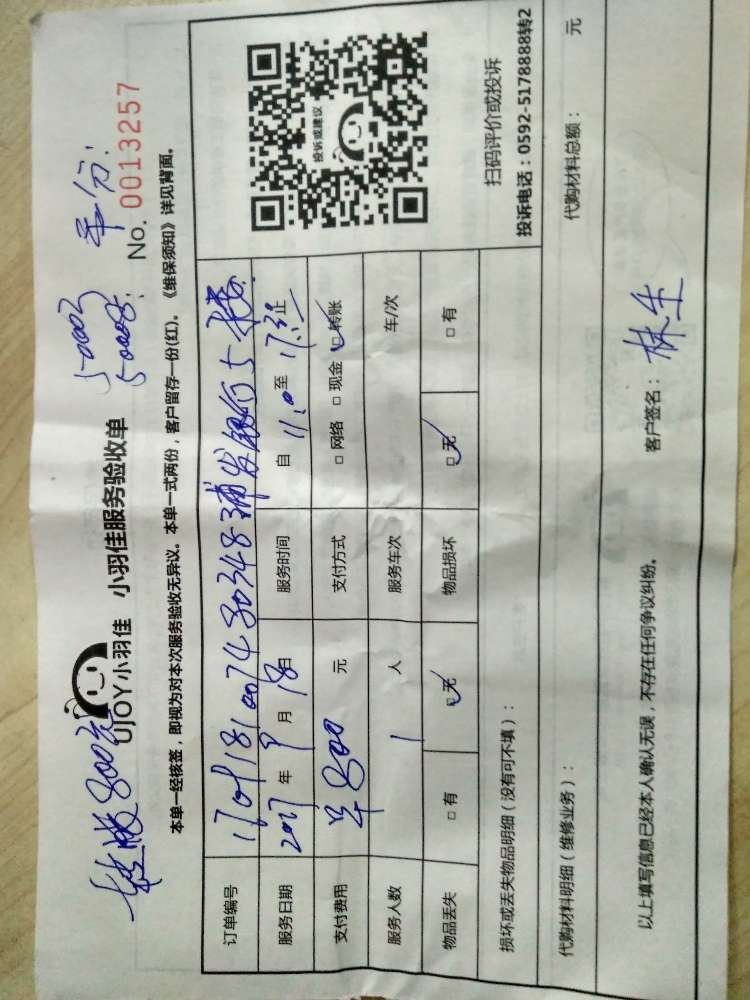 800元
UJOY小羽佳 小羽佳服务验收单
No. 0013257
本单一经核签，即视为对本次服务验收无异议。本单一式两份，客户留存一份(红)。《维保须知》详见背面。
订单编号 1709181007430348 浦发银行5楼
服务日期 2017 年 9 月 18 日 服务时间 自 11.0 至 17.30 止
支付费用 800 元 支付方式 □ 网络 □ 现金 □ 转账
服务人数 1 人 服务车次 车/次
物品丢失 □ 有 □ 无 物品损坏 □ 无 □ 有
损坏或丢失物品明细（没有可不填）：
投诉或建议
扫码评价或投诉
投诉电话：0592-5178888转2
代购材料明细（维修业务）： 代购材料总额： 元
以上填写信息已经本人确认无误，不存在任何争议纠纷。 客户签名： 林生